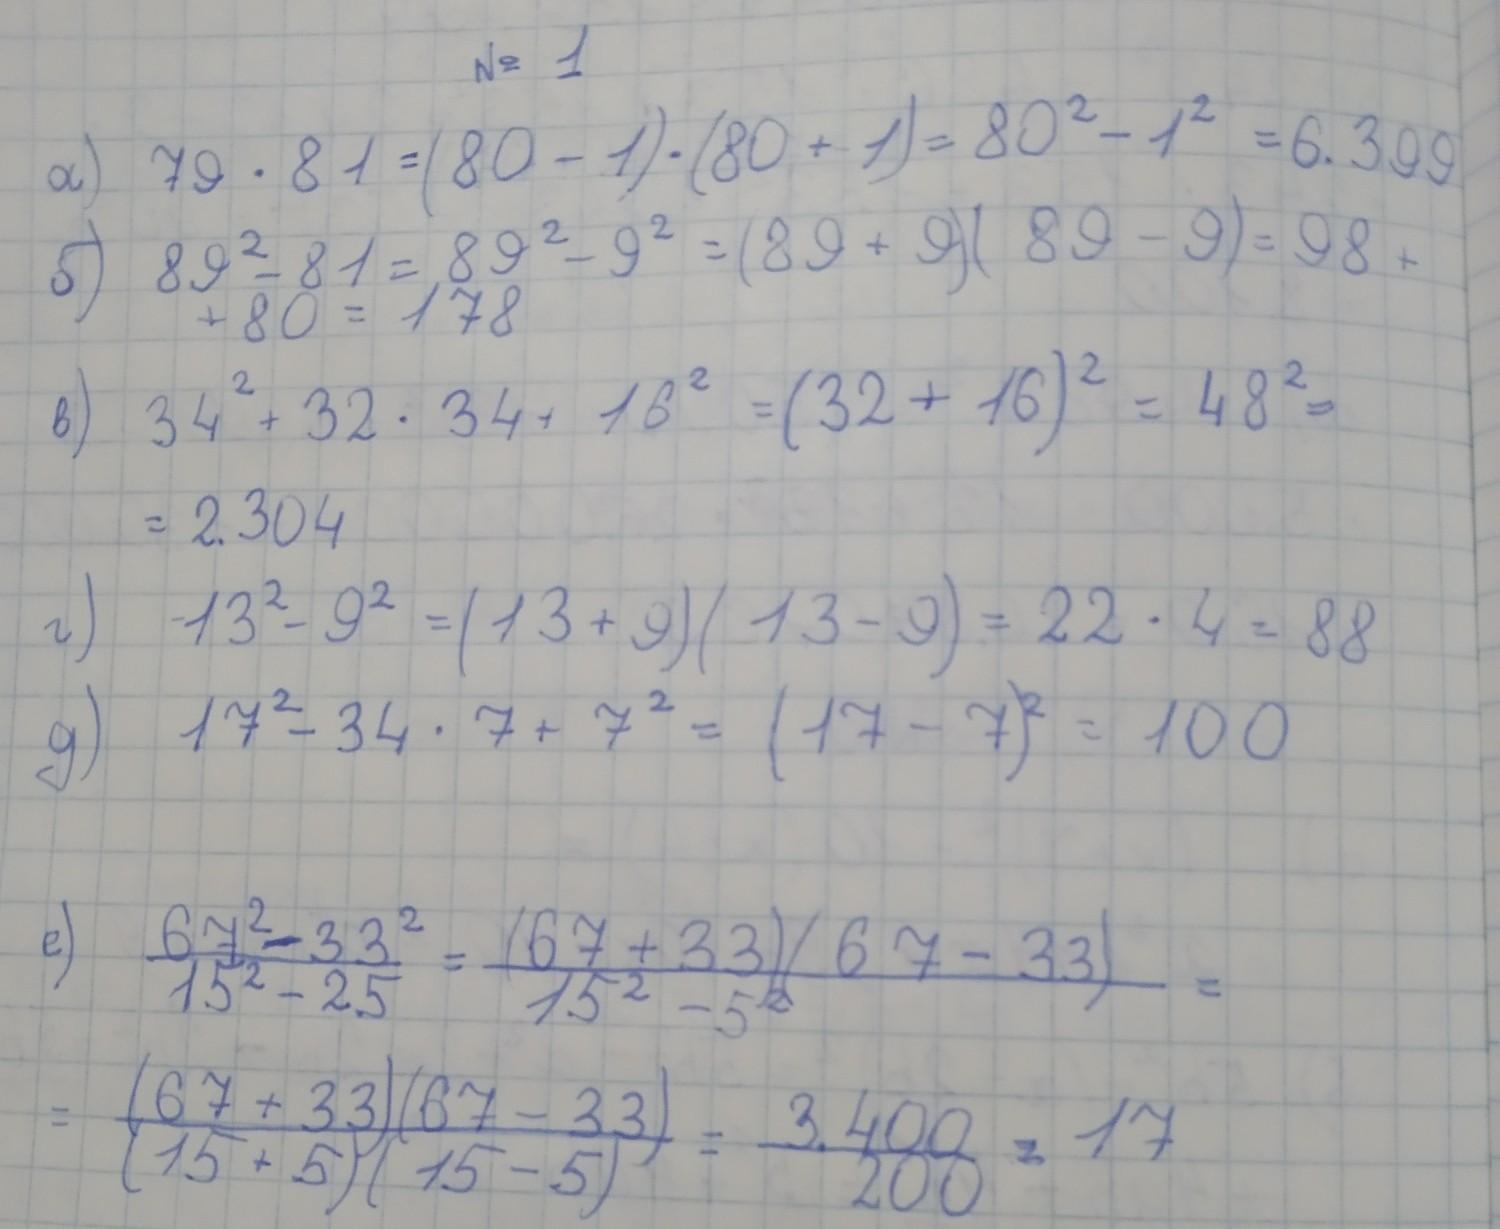 № 1
а) 79 · 81 = (80 - 1) · (80 + 1) = 80² - 1² = 6.399
б) 89² - 81 = 89² - 9² = (89 + 9)( 89 - 9) = 98 +
+ 80 = 178
в) 34² + 32 · 34 + 16² = (32 + 16)² = 48² =
= 2.304
г) 13² - 9² = (13 + 9)( 13 - 9) = 22 · 4 = 88
д) 17² - 34 · 7 + 7² = (17 - 7)² = 100
е) (67² - 33²)/(15² - 25) = ((67 + 33)(67 - 33))/(15² - 5²) =
= ((67 + 33)(67 - 33))/((15 + 5)(15 - 5)) = 3.400/200 = 17